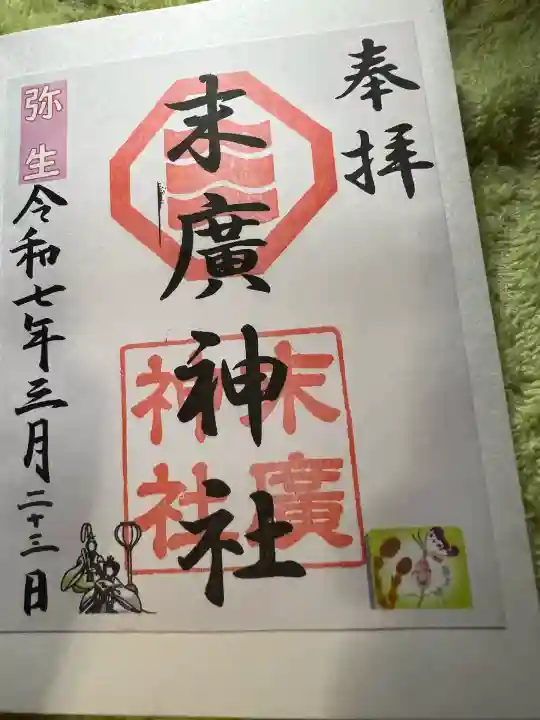 奉拝
末廣神社
末廣
神社
弥生
令和七年三月二十三日